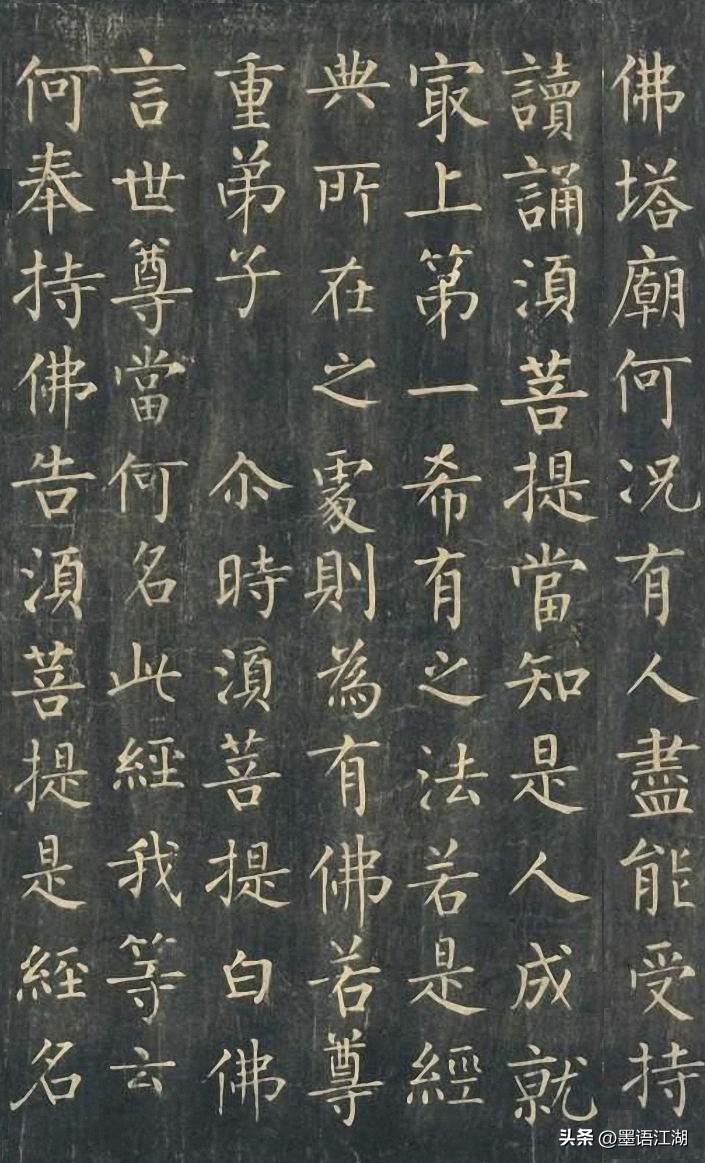 佛塔廟何況有人盡能受持
讀誦湏菩提當知是人成就
㝡上第一希有之法若是經
典所在之處則為有佛若尊
重弟子 尒時湏菩提白佛
言世尊當何名此經我等云
何奉持佛告湏菩提是經名
头条 @墨语江湖